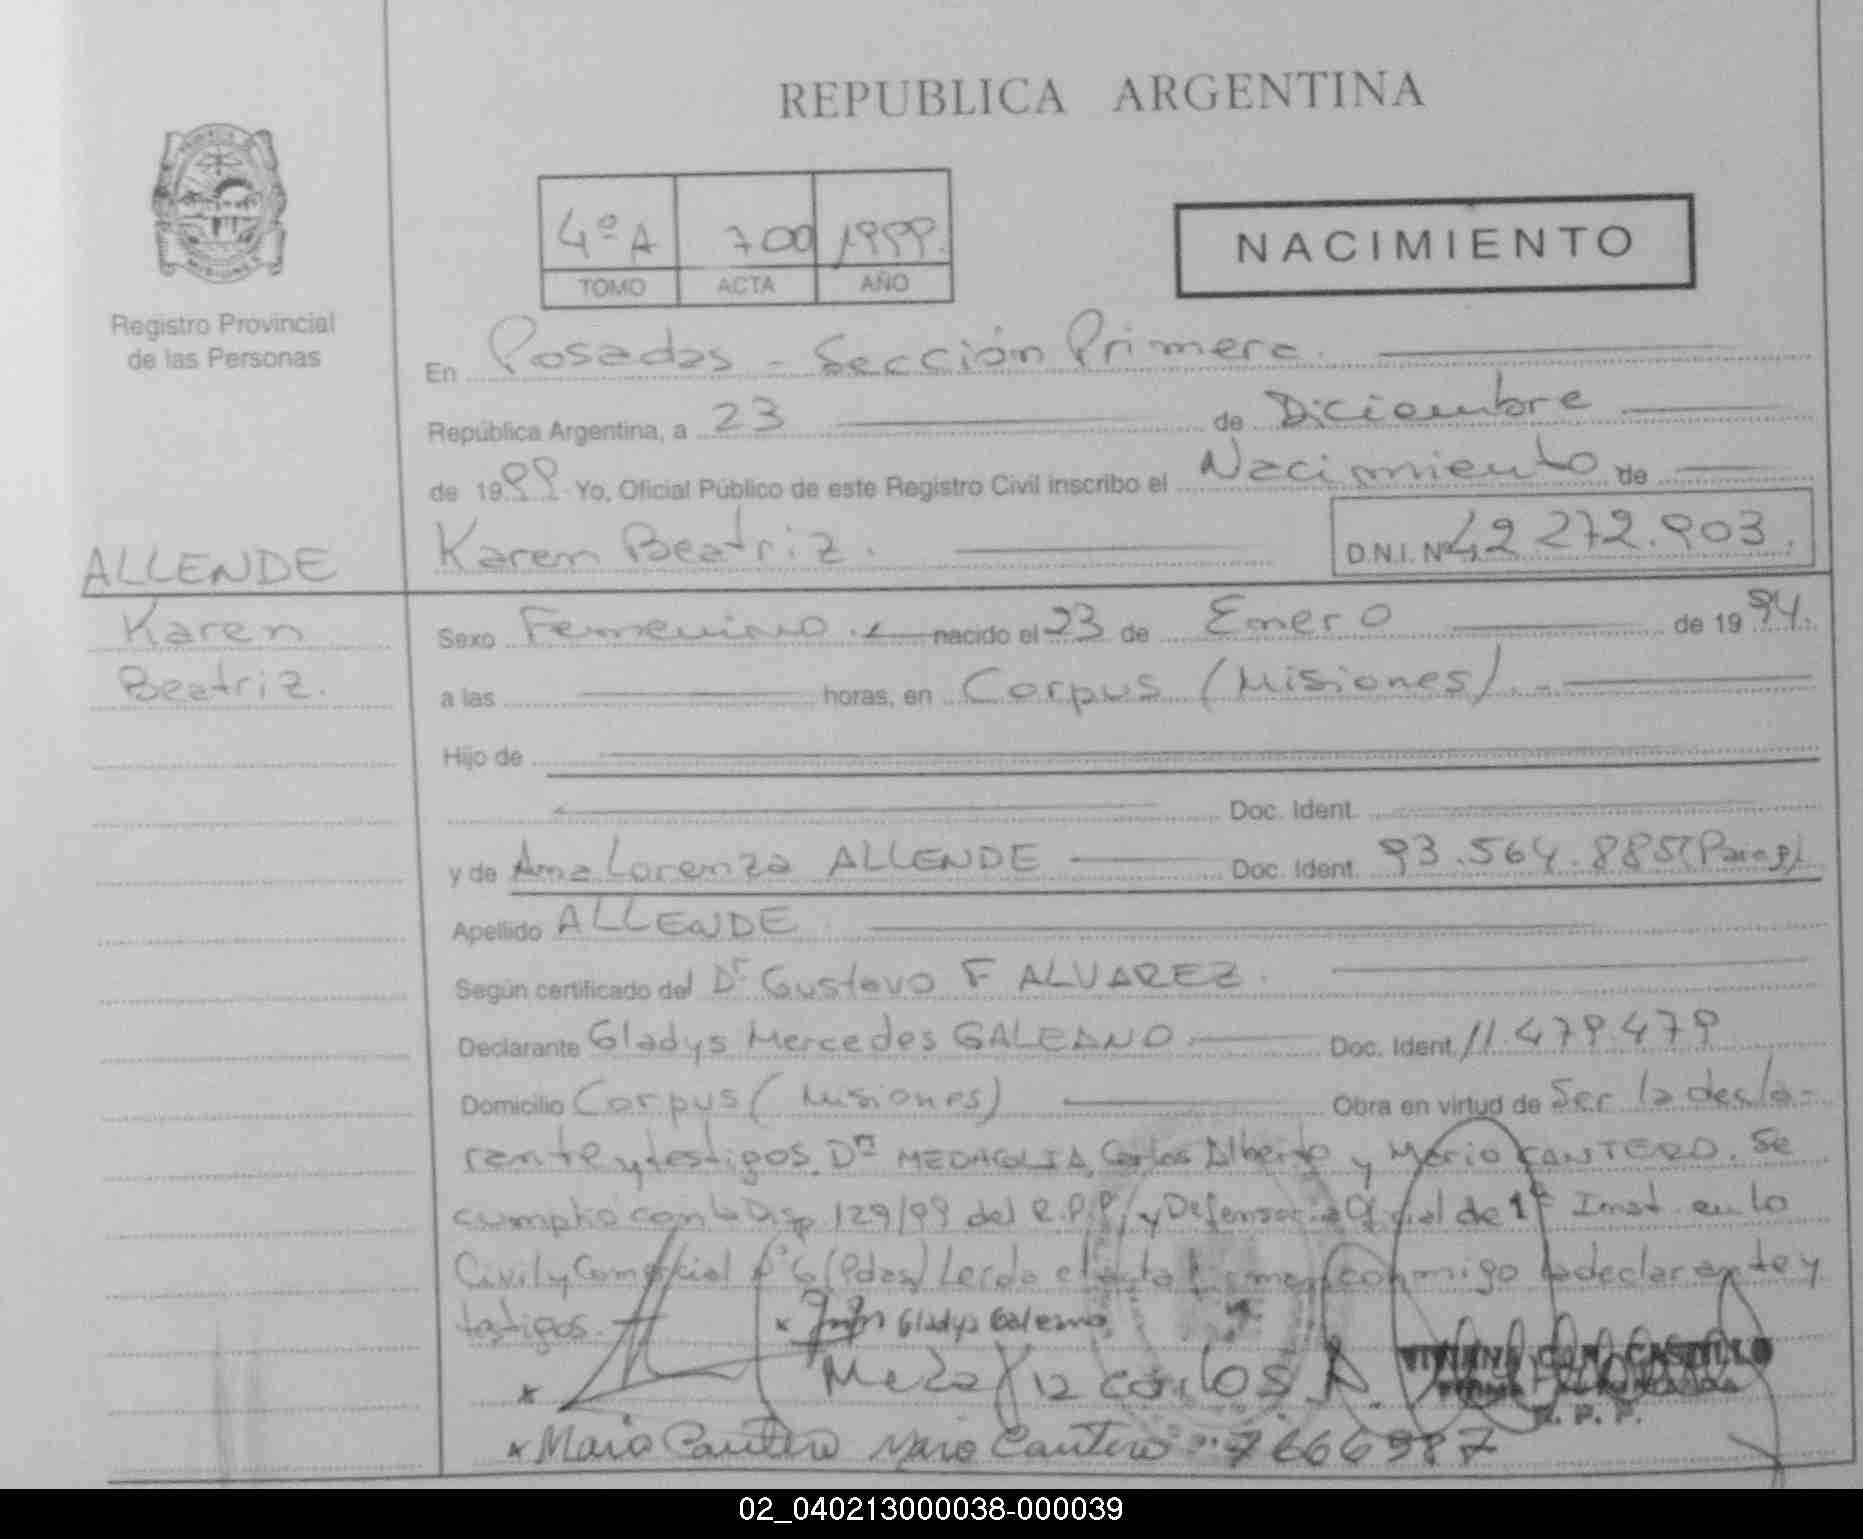 REPUBLICA ARGENTINA
4º A 700 1999.
TOMO ACTA AÑO
NACIMIENTO
Registro Provincial
de las Personas
En Posadas - Sección Primera.
República Argentina, a 23 de Diciembre
de 1999 Yo, Oficial Público de este Registro Civil inscribo el Nacimiento de
ALLENDE Karen Beatriz. D.N.I. Nº 42 272.903.
Karen Sexo Femenino.- nacido el 23 de Enero de 1994.
Beatriz. a las horas, en Corpus (Misiones).-
Hijo de
Doc. Ident.
y de Ana Lorenza ALLENDE Doc. Ident. 93.564.885 (Parag).
Apellido ALLENDE.
Según certificado del Dr Gustavo F ALVAREZ.
Declarante Gladys Mercedes GALEANO Doc. Ident. 11.479.479
Domicilio Corpus (Misiones) Obra en virtud de Ser la decla-
rante y testigos. Dn MEDAGLIA, Carlos Alberto y Mario CANTERO. Se
cumplió con la Disp 129/99 del R.P.P. y Defensoria Oficial de 1ª Inst. en lo
Civil y Comercial Nº 6 (Pdas) Leida el acta firman conmigo la declarante y
testigos.
x Gladys Galeano
x Carlos A.
CASTILLO
R. P. P.
x Mario Cantero Mario Cantero 7666987
02_040213000038-000039